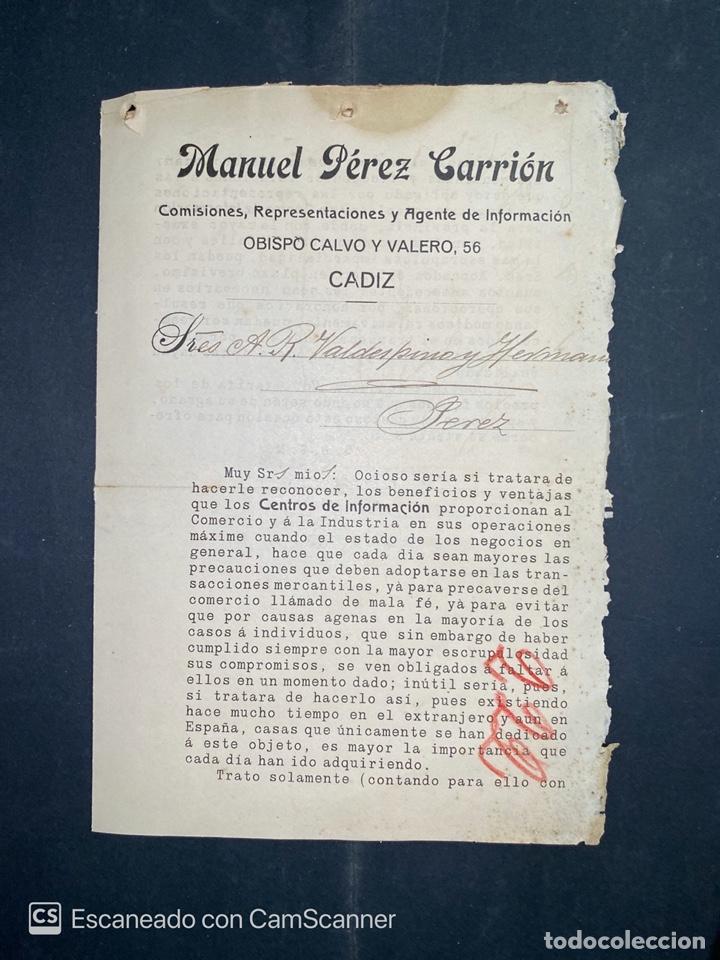 Manuel Pérez Carrión
Comisiones, Representaciones y Agente de Información
OBISPO CALVO Y VALERO, 56
CADIZ
Sres A. R. Valdespino y Herman
Jerez
Muy Srs mios: Ocioso sería si tratara de
hacerle reconocer, los beneficios y ventajas
que los Centros de Información proporcionan al
Comercio y á la Industria en sus operaciones
máxime cuando el estado de los negocios en
general, hace que cada dia sean mayores las
precauciones que deben adoptarse en las tran-
sacciones mercantiles, yà para precaverse del
comercio llámado de mala fé, yà para evitar
que por causas agenas en la mayoría de los
casos á individuos, que sin embargo de haber
cumplido siempre con la mayor escrupulosidad
sus compromisos, se ven obligados á faltar á
ellos en un momento dado; inútil sería, pues,
si tratara de hacerlo así, pues existiendo
hace mucho tiempo en el extranjero y aun en
España, casas que únicamente se han dedicado
á este objeto, es mayor la importancia que
cada día han ido adquiriendo.
Trato solamente (contando para ello con
CS Escaneado con CamScanner
todocoleccion